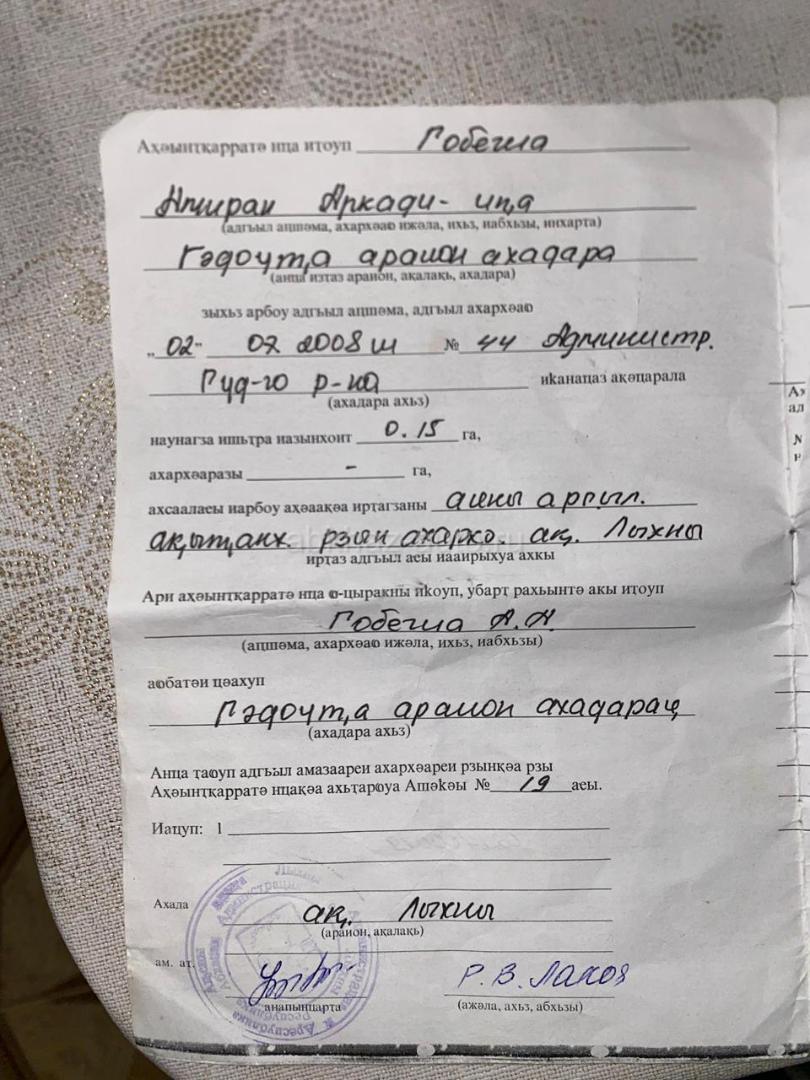 Аҳәынҭқарратә нҵа итоуп Гобечиа
Апиран Аркади- иԥа
(адгьыл аԥшәма, ахархәаҩ ижәла, ихьӡ, иабхьӡы, инхарта)
Гәдоуҭа араион ахадара
(анҵа изҭаз араион, ақалақь, ахадара)
зыхьӡ арбоу адгьыл аԥшәма, адгьыл ахархәаҩ
„02“ 07 2008 ш № 44 Администр.
Гуд-го р-на иҟанаҵаз ақәҵарала
(ахадара ахьӡ)
наунагӡа ишьҭра назынхоит 0.15 га,
ахархәаразы - га,
ахсаалаҿы иарбоу аҳәаақәа иртагӡаны аҩны аргыл.
ақыҭанх. рзын ахархә. ақ. Лыхны
иҭаз адгьыл аҿы иааирыхуа ахкы
Ари аҳәынҭқарратә нҵа ҩ-цыракны иҟоуп, убарҭ рахьынтә акы итоуп
Гобечиа А.А
(аԥшәма, ахархәаҩ ижәла, ихьӡ, иабхьӡы)
аҩбатәи ҵәахуп
Гәдоуҭа араион ахадараҿ
(ахадара ахьӡ)
Анҵа ҭаҩуп адгьыл амазаареи ахархәареи рзынқәа рзы
Аҳәынҭқарратә нҵақәа ахьҭарҩуа Ашәҟәы № 19 аҿы.
Иаҵуп: 1
Ахада ақ. Лыхны
(араион, ақалақь)
ам. аҭ.
Р.В. Лакоя
анапынҵарҭа (ажәла, ахьӡ, абхьӡы)